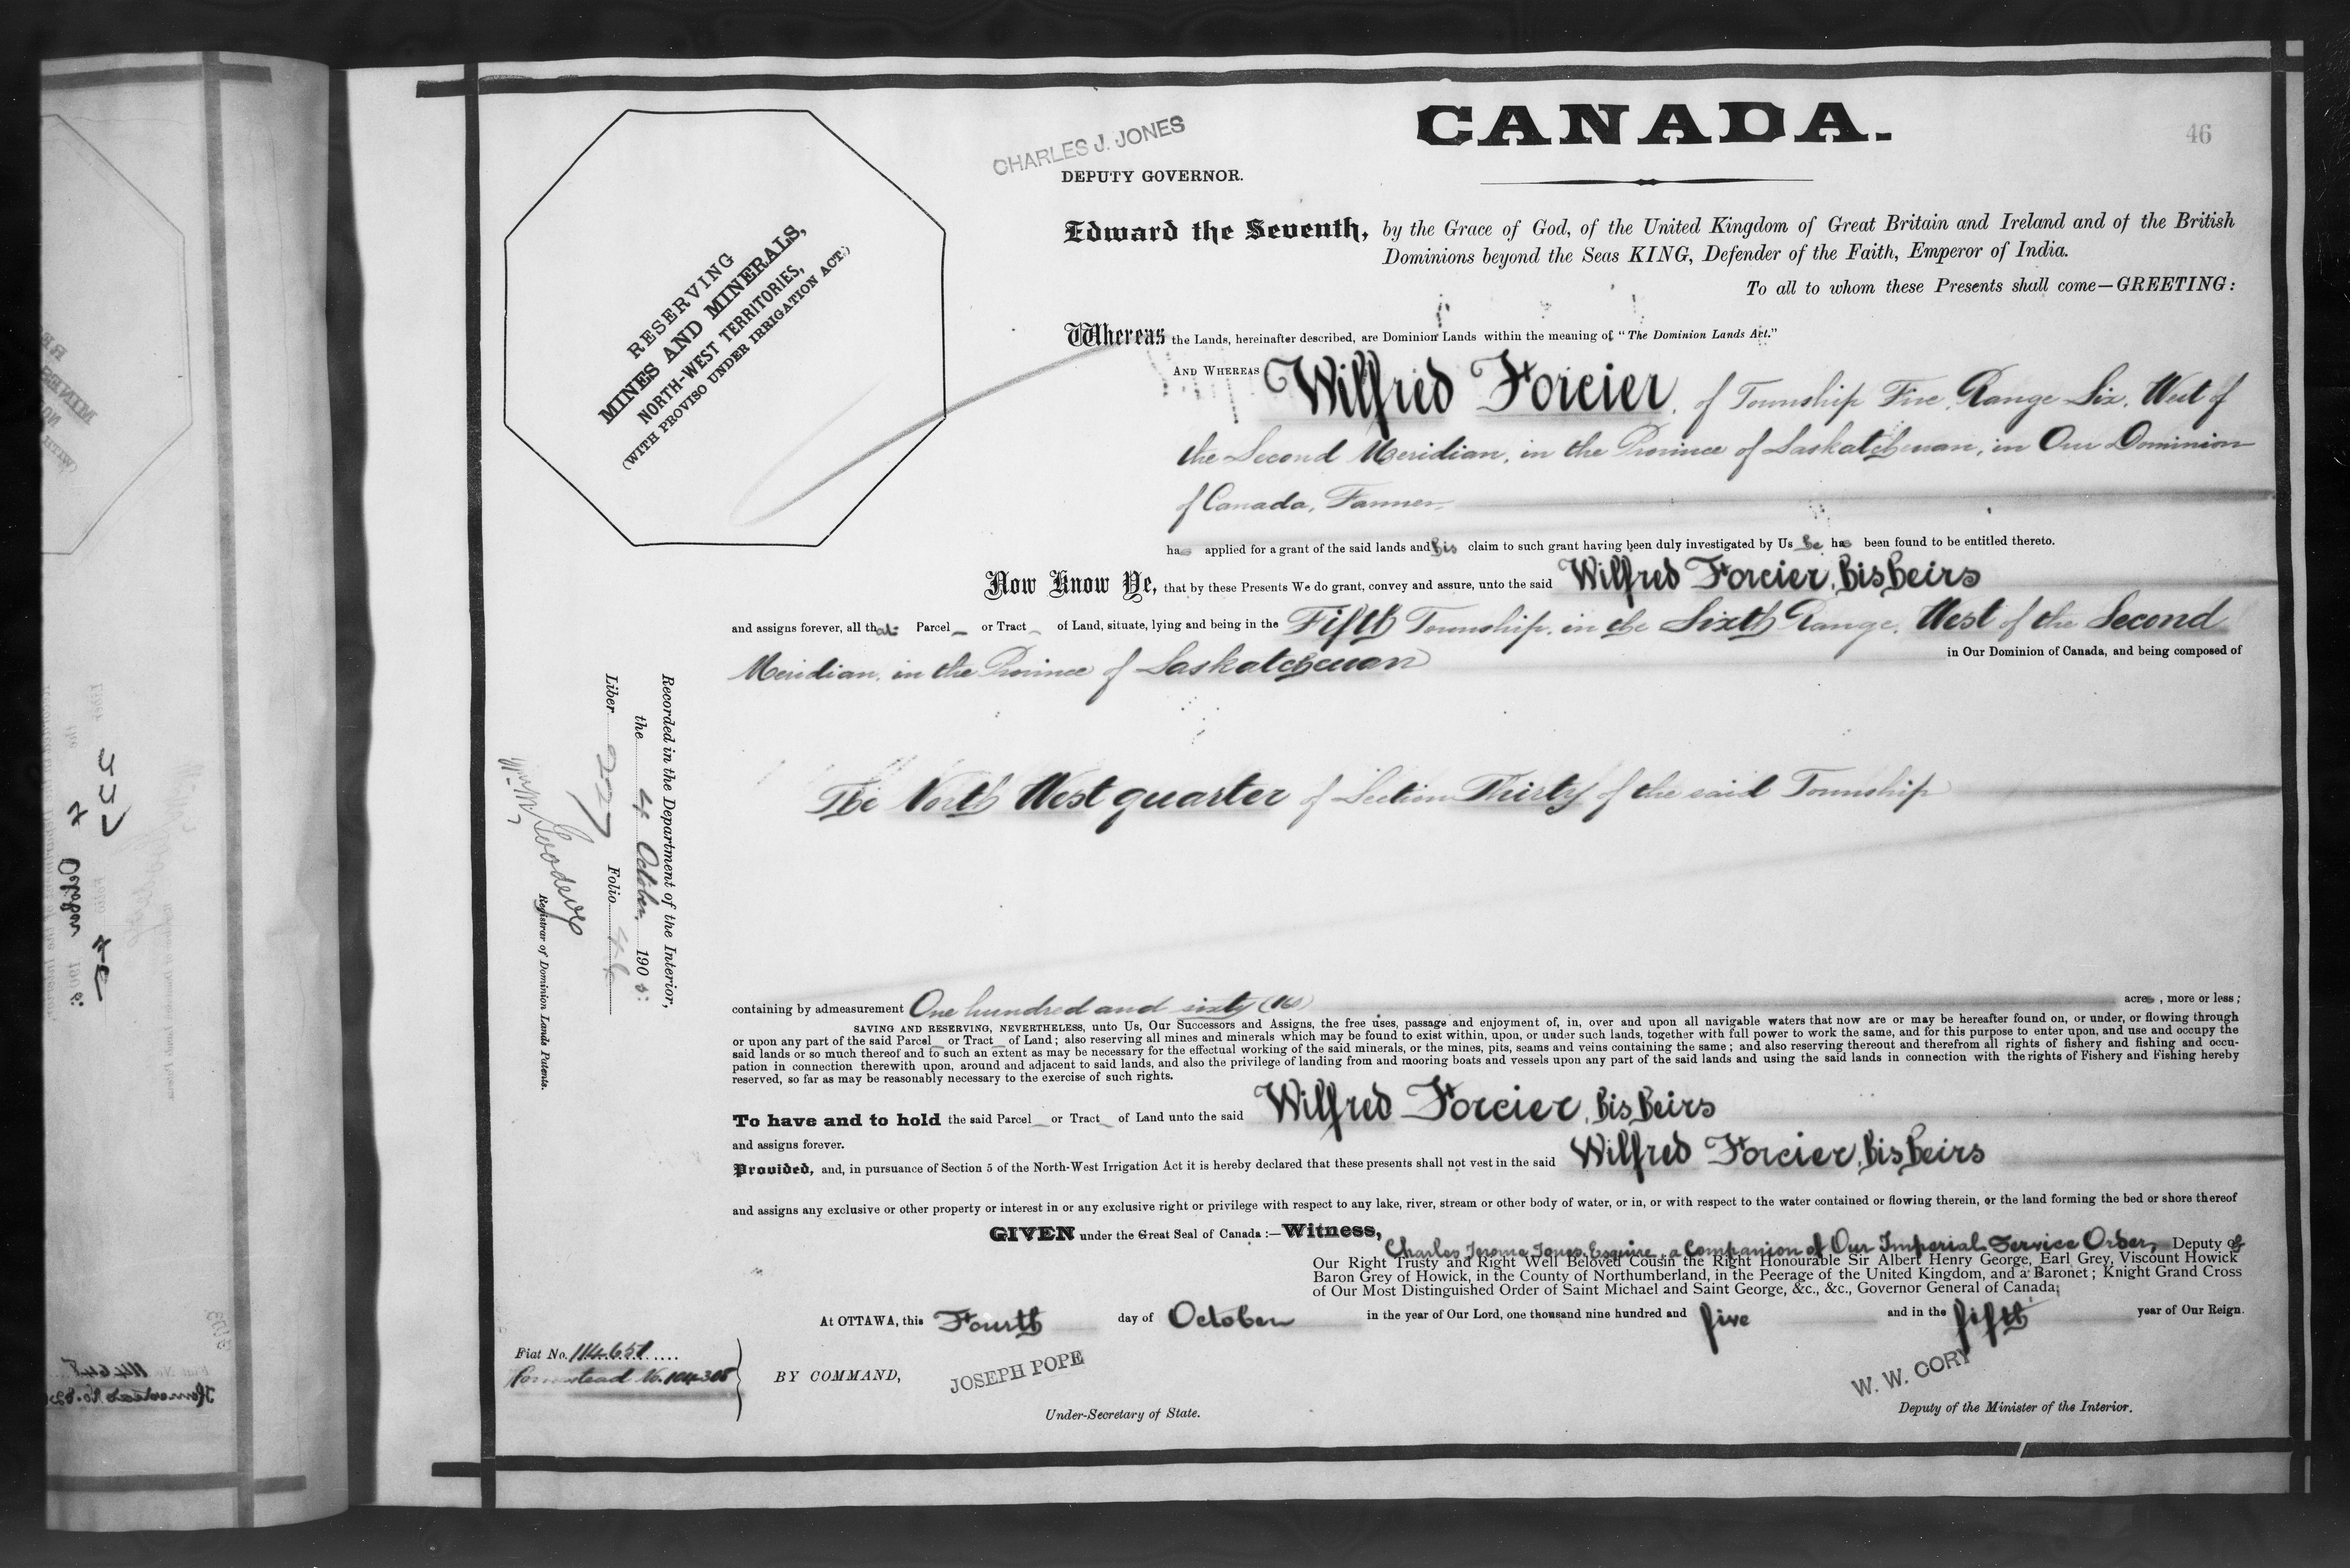 CANADA.
46
CHARLES J. JONES
DEPUTY GOVERNOR.
RESERVING
MINES AND MINERALS,
NORTH-WEST TERRITORIES,
(WITH PROVISO UNDER IRRIGATION ACT.)
Edward the Seventh, by the Grace of God, of the United Kingdom of Great Britain and Ireland and of the British
Dominions beyond the Seas KING, Defender of the Faith, Emperor of India.
To all to whom these Presents shall come—GREETING:
Whereas the Lands, hereinafter described, are Dominion Lands within the meaning of "The Dominion Lands Act."
AND WHEREAS Wilfred Forcier, of Township Five, Range Six, West of
the Second Meridian, in the Province of Saskatchewan, in Our Dominion
of Canada, Farmer,
has applied for a grant of the said lands and his claim to such grant having been duly investigated by Us he has been found to be entitled thereto.
Now Know Ye, that by these Presents We do grant, convey and assure, unto the said Wilfred Forcier, his heirs
and assigns forever, all that Parcel or Tract of Land, situate, lying and being in the Fifth Township, in the Sixth Range, West of the Second
Meridian, in the Province of Saskatchewan
in Our Dominion of Canada, and being composed of
The North West quarter of Section Thirty of the said Township
containing by admeasurement One hundred and sixty (160) acres, more or less;
SAVING AND RESERVING, NEVERTHELESS, unto Us, Our Successors and Assigns, the free uses, passage and enjoyment of, in, over and upon all navigable waters that now are or may be hereafter found on, or under, or flowing through
or upon any part of the said Parcel or Tract of Land; also reserving all mines and minerals which may be found to exist within, upon, or under such lands, together with full power to work the same, and for this purpose to enter upon, and use and occupy the
said lands or so much thereof and to such an extent as may be necessary for the effectual working of the said minerals, or the mines, pits, seams and veins containing the same; and also reserving thereout and therefrom all rights of fishery and fishing and occu-
pation in connection therewith upon, around and adjacent to said lands, and also the privilege of landing from and mooring boats and vessels upon any part of the said lands and using the said lands in connection with the rights of Fishery and Fishing hereby
reserved, so far as may be reasonably necessary to the exercise of such rights.
To have and to hold the said Parcel or Tract of Land unto the said Wilfred Forcier, his heirs
and assigns forever.
Provided, and, in pursuance of Section 5 of the North-West Irrigation Act it is hereby declared that these presents shall not vest in the said Wilfred Forcier, his heirs
and assigns any exclusive or other property or interest in or any exclusive right or privilege with respect to any lake, river, stream or other body of water, or in, or with respect to the water contained or flowing therein, or the land forming the bed or shore thereof
GIVEN under the Great Seal of Canada:—Witness,
Charles Jerome Jones, Esquire, a Companion of Our Imperial Service Order, Deputy of
Our Right Trusty and Right Well Beloved Cousin the Right Honourable Sir Albert Henry George, Earl Grey, Viscount Howick
Baron Grey of Howick, in the County of Northumberland, in the Peerage of the United Kingdom, and a Baronet; Knight Grand Cross
of Our Most Distinguished Order of Saint Michael and Saint George, &c., &c., Governor General of Canada;
At OTTAWA, this Fourth day of October in the year of Our Lord, one thousand nine hundred and five and in the fifth year of Our Reign.
Fiat No. 114651
Homestead No. 104305
BY COMMAND,
JOSEPH POPE
Under-Secretary of State.
W. W. CORY
Deputy of the Minister of the Interior.
Recorded in the Department of the Interior,
the 4 October 1905:
Liber 227 Folio 46
Goodeve
Registrar of Dominion Lands Patents.